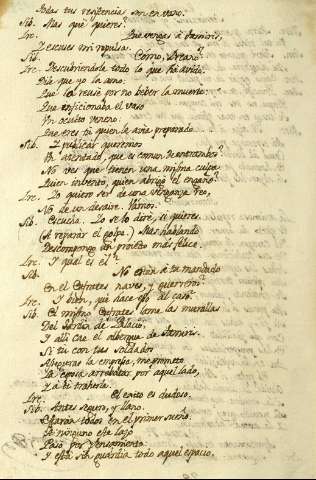 Todas tus resistencia son en vano.
Sib. Mas qué quieres?
Ire. Que vengas à Tamiris,
Y escuses mi repulsa.
Sib. Cómo, Ireano?
Ire. Descubriendole todo lo que há avido.
Dila que yo la amo:
Que rehusè por no beber la muerte:
Que inficionaba el vaso
Un oculto veneno:
Que eres tu quien la avia preparado...
Sib. Y publicar queremos
Un atentado, que es comun de entrambos?
No ves que tienen una misma culpa
Quien inventò, quien abrigò el engaño?
Ire. Yo quiero ser de una venganza reo,
No de un desaire. Vamos.
Sib. Escucha. Yo se lo dirè, si quieres.
(A reparar el golpe.) Mas hablando
Descompongo un proiecto mas felice.
Ire. Y qual es el?
Sib. No estàn à tu mandado
En el Eufrates naves, y guerreros?
Ire. Y bien, què hace eso al caso?
Sib. El mismo Eufrates lame las murallas
Del Jardin de Palacio,
Y alli cae el albergue de Tamiris.
Si tù con tus soldados
Apoyas la empresa, me prometo
La esposa arrebatar por aquel lado,
Y à tì traherla.
Ire. El exito es dudoso.
Sib. Antes seguro, y llano.
Estaràn todos en el primer sueño.
A ninguno este lazo
Pasò por pensamiento:
Y està sin guardia todo aquel espacio.